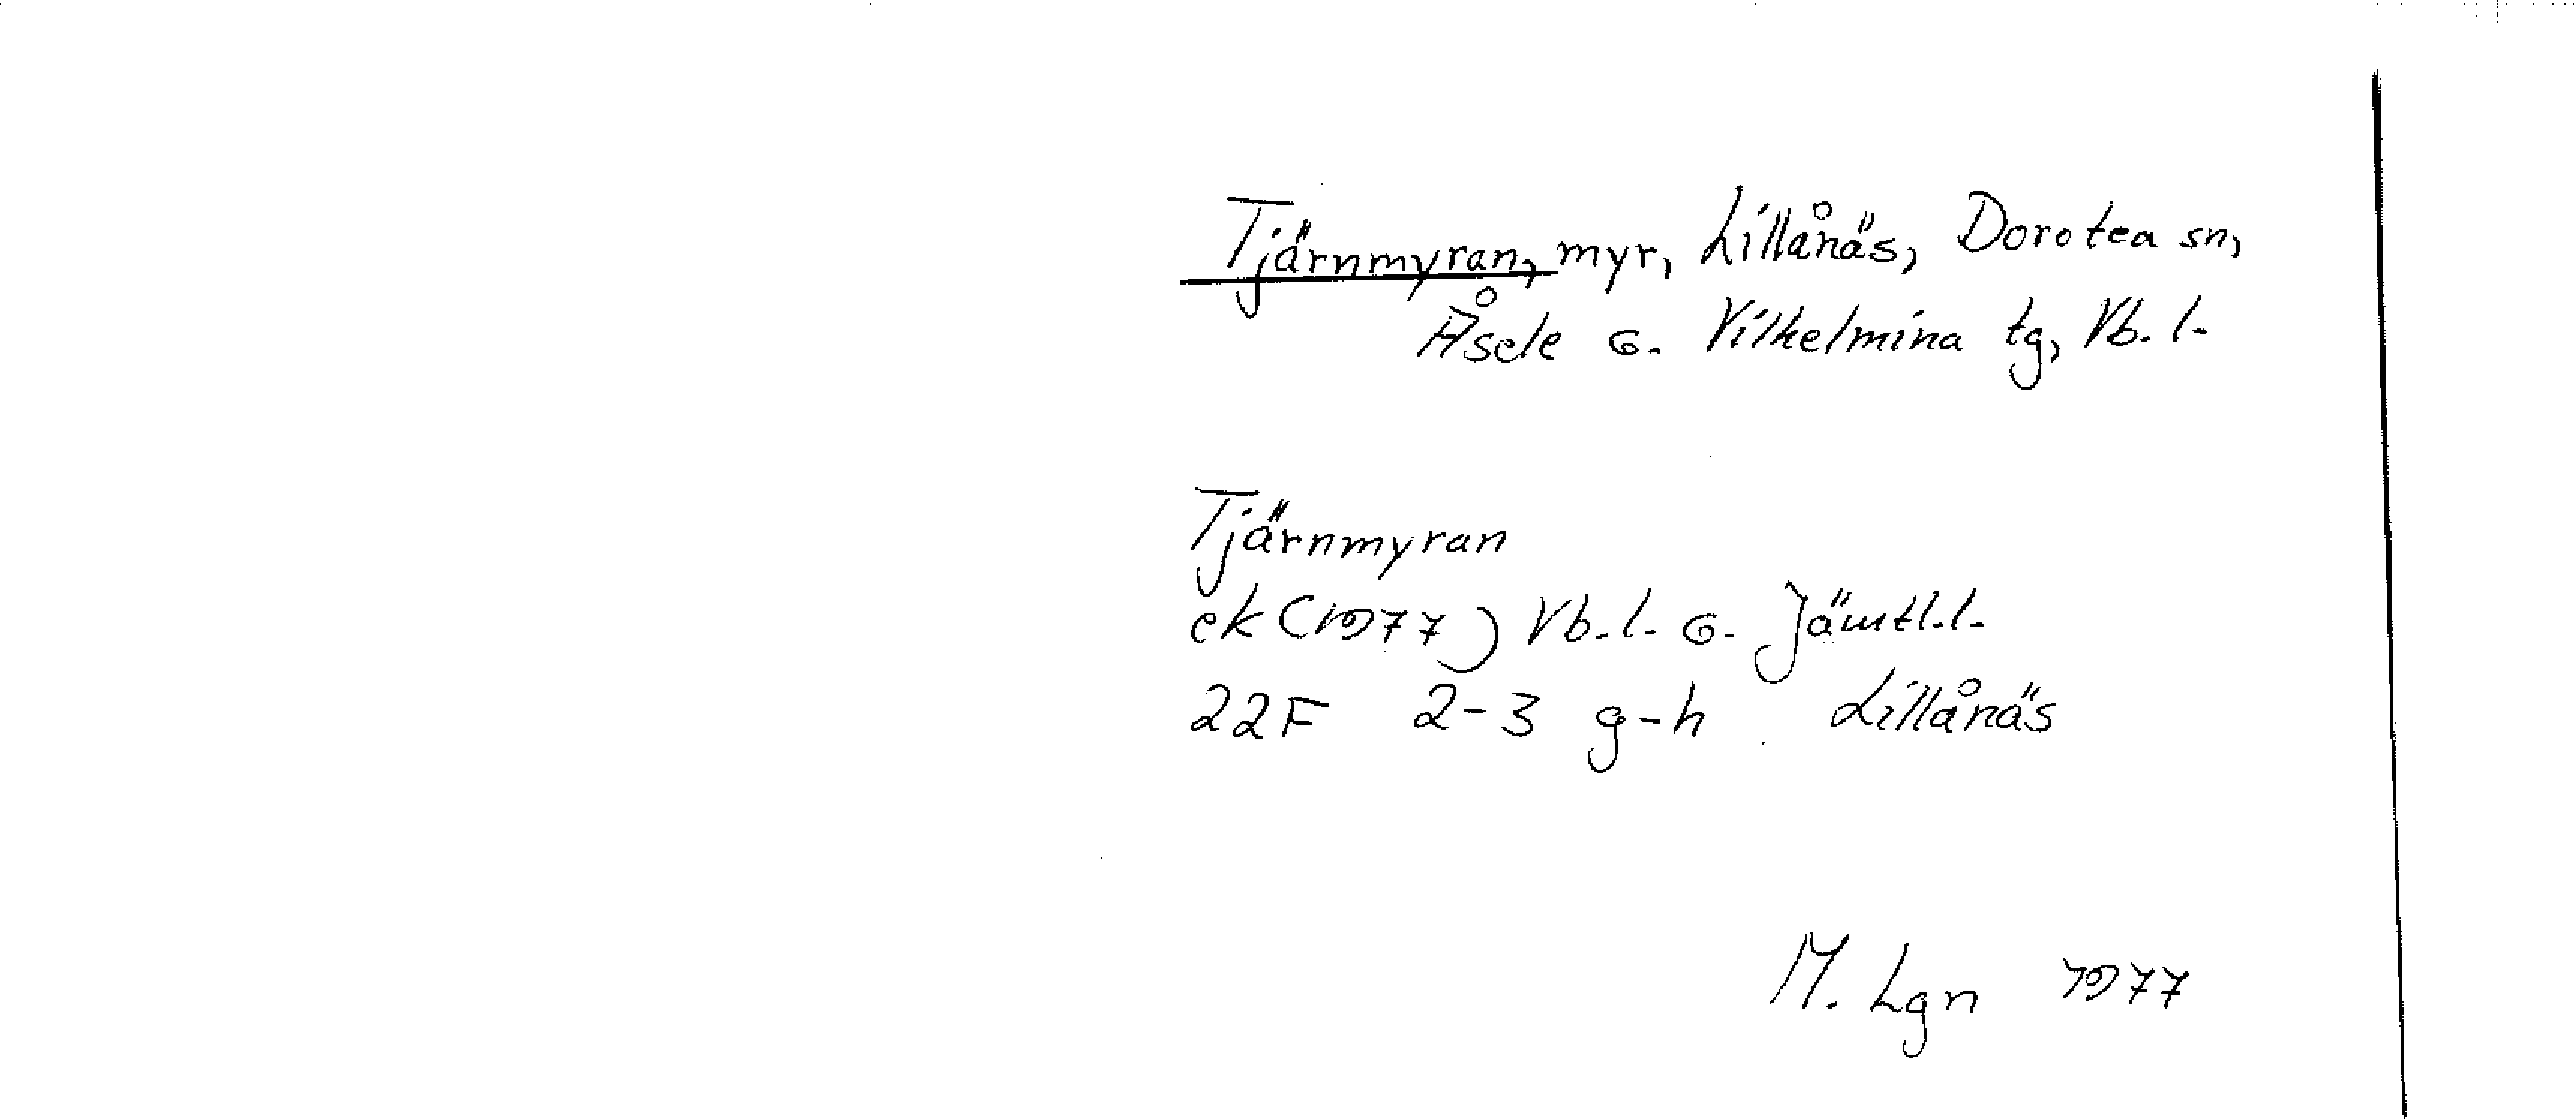 Tjärnmyran, myr, Lillånäs, Dorotea sn,
Åsele o. Vilhelmina tg, Vb. l.
Tjärnmyran
ek (1977) Vb. l. o. Jämtl. l.
22F 2-3 g-h Lillånäs
M. Lgn 1977